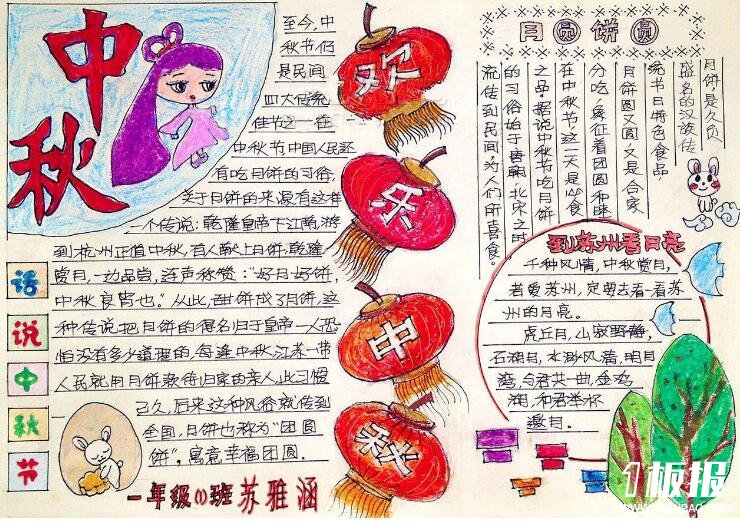 中秋
至今,中
秋节仍
是民间
四大传统
佳节之一在
中秋节中国人民还
有吃月饼的习俗,
关于月饼的来源有这样
一个传说:乾隆皇帝下江南,游
到杭州正值中秋,有人献上月饼,乾隆
赏月,一边品尝,连声称赞:“好月好饼,
中秋良宵也。”从此,甜饼成了月饼,这
种传说把月饼的得名归于皇帝一人恐
怕没有多少道理的,每逢中秋,江苏一带
人民就用月饼款待归家的亲人,此习惯
已久,后来这种风俗就传到
全国,月饼也称为“团圆
饼”,寓意幸福团圆。
话说中秋节
一年级(1)班 苏雅涵
欢
乐
中
秋
月圆饼圆
月饼是久负
盛名的汉族传
统节日特色食品,
月饼圆又圆,又是合家
分吃,象征着团圆和睦
在中秋节这一天是必食
之品,据说中秋节吃月饼
的习俗始于唐朝,北宋之时
流传到民间,为人们所喜食。
到苏州看月亮
千种风情,中秋赏月,
若爱苏州,定要去看一看苏
州的月亮。
虎丘月,山寂野静,
石湖月,水渺风清,明月
湾,与君共一曲,金鸡
湖,和君举杯
邀月。
1板报